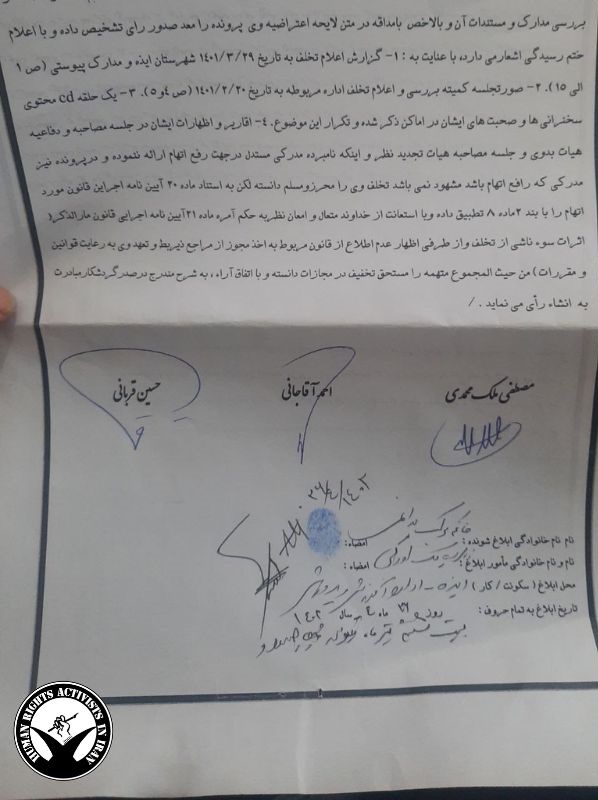 بررسی مدارک و مستندات آن و بالاخص بامداقه در متن لایحه اعتراضیه وی پرونده را معد صدور رای تشخیص داده و با اعلام
ختم رسیدگی اشعار می دارد، با عنایت به : ۱- گزارش اعلام تخلف به تاریخ ۱۴۰۱/۳/۲۹ شهرستان ایذه و مدارک پیوستی (ص ۱
الی ۱۵). ۲- صورتجلسه کمیته بررسی و اعلام تخلف اداره مربوطه به تاریخ ۱۴۰۱/۲/۲۰ (ص ۴و۵). ۳- یک حلقه cd محتوی
سخنرانی ها و صحبت های ایشان در اماکن ذکر شده و تکرار این موضوع. ۴- اقاریر و اظهارات ایشان در جلسه مصاحبه و دفاعیه
هیات بدوی و جلسه مصاحبه هیات تجدید نظر و اینکه نامبرده مدرکی مستدل درجهت رفع اتهام ارائه ننموده و درپرونده نیز
مدرکی که رافع اتهام باشد مشهود نمی باشد تخلف وی را محرزومسلم دانسته لکن به استناد ماده ۲۰ آیین نامه اجراین قانون مورد
اتهام را با بند ۲ماده ۸ تطبیق داده وبا استعانت از خداوند متعال و امعان نظر به حکم آمره ماده ۲۱آیین نامه اجرایی قانون مارالذکر(
اثرات سوء ناشی از تخلف واز طرفی اظهار عدم اطلاع از قانون مربوط به اخذ مجوز از مراجع ذیربط و تعهد وی به رعایت قوانین
و مقررات) من حیث المجموع متهمه را مستحق تخفیف در مجازات دانسته و با اتفاق آراء ، به شرح مندرج درصدر گردشکار مبادرت
به انشاء رأی می نماید . /
مصطفی ملک محمدی
احمد آقاجانی
حسین قربانی
۱۴۰۲/۴/۲۶
نام نام خانوادگی ابلاغ شونده : خانم کوکب امضاء:
نام و نام خانوادگی مأمور ابلاغ : امضاء :
محل ابلاغ ( سکونت / کار ) ایذه - اداره آموزش و پرورش
تاریخ ابلاغ به تمام حروف : روز ۲۶ ماه ۴ سال ۱۴۰۲
بیست و ششم تیر ماه
HUMAN RIGHTS ACTIVISTS IN IRAN